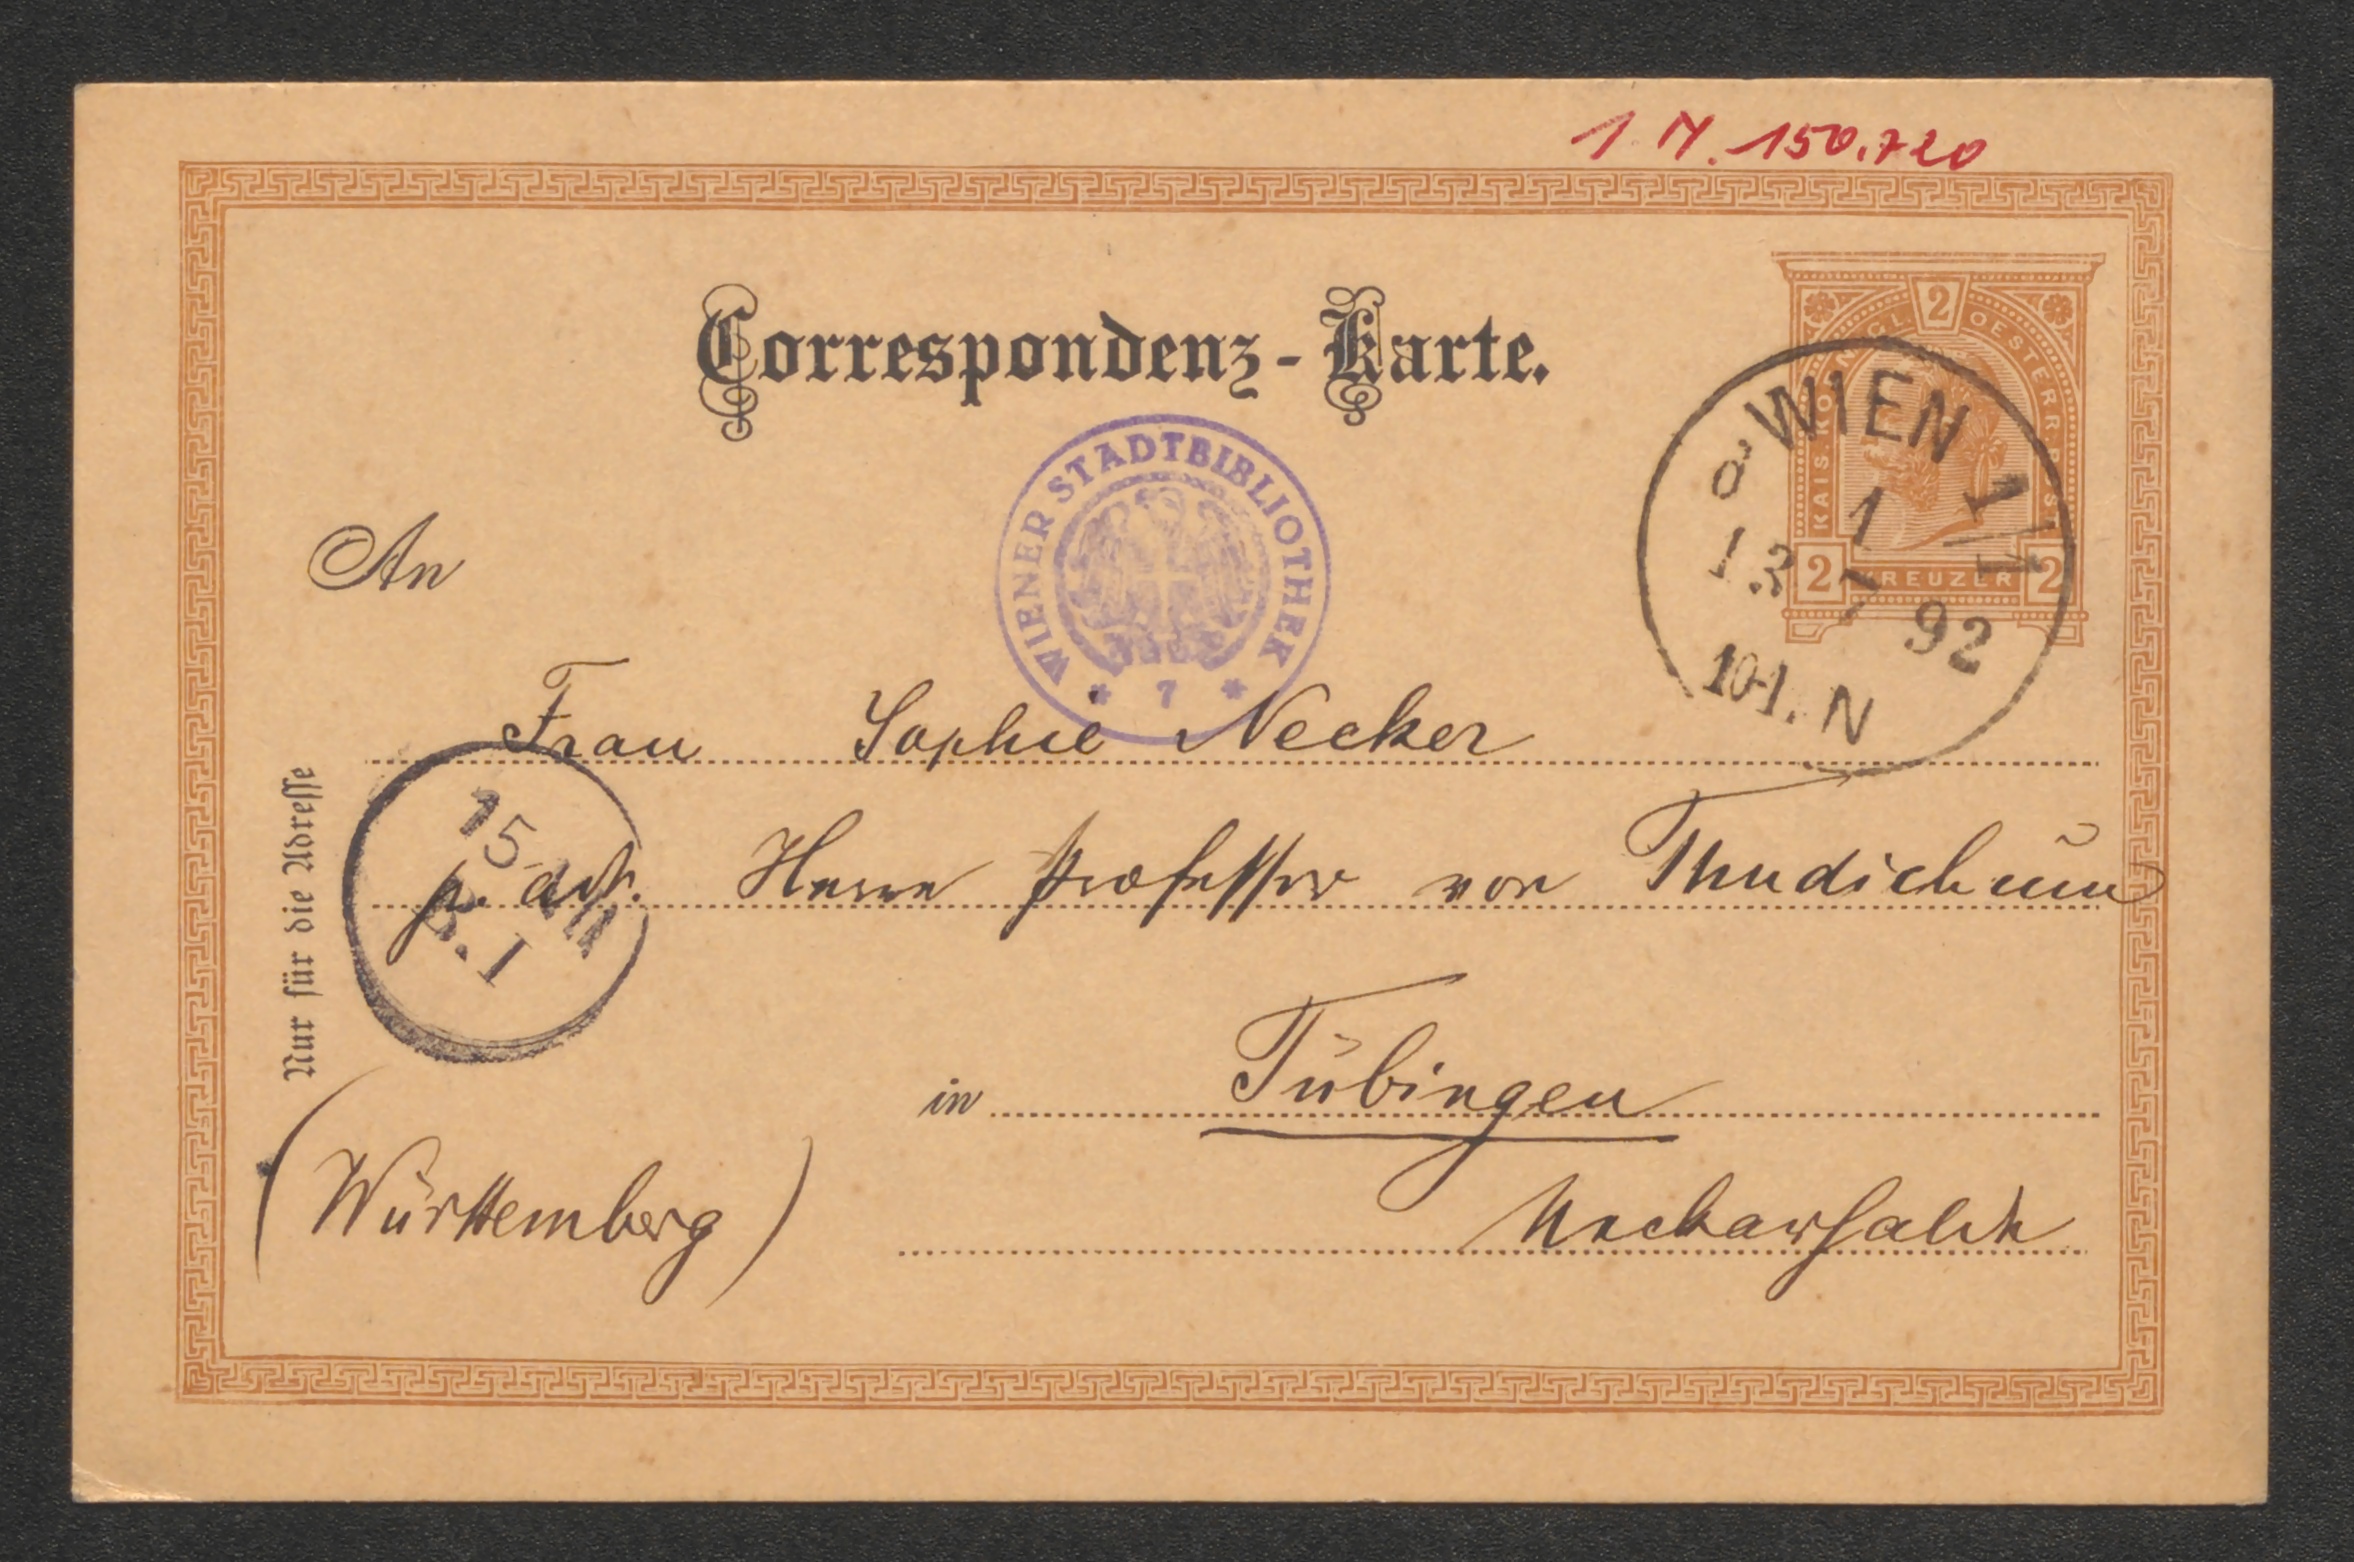 1 N. 150.720
Correspondenz-Karte.
2
KAIS. KÖNIGL. OESTERR. POST
2 KREUZER 2
WIEN 1/1
13 7 92
10-1. N
WIENER STADTBIBLIOTHEK
* 7 *
An
Frau Sophie Necker
p. adr. Herrn Professor von Thudichum
15
Nur für die Adresse
in Tübingen
(Württemberg)
Neckarhalde